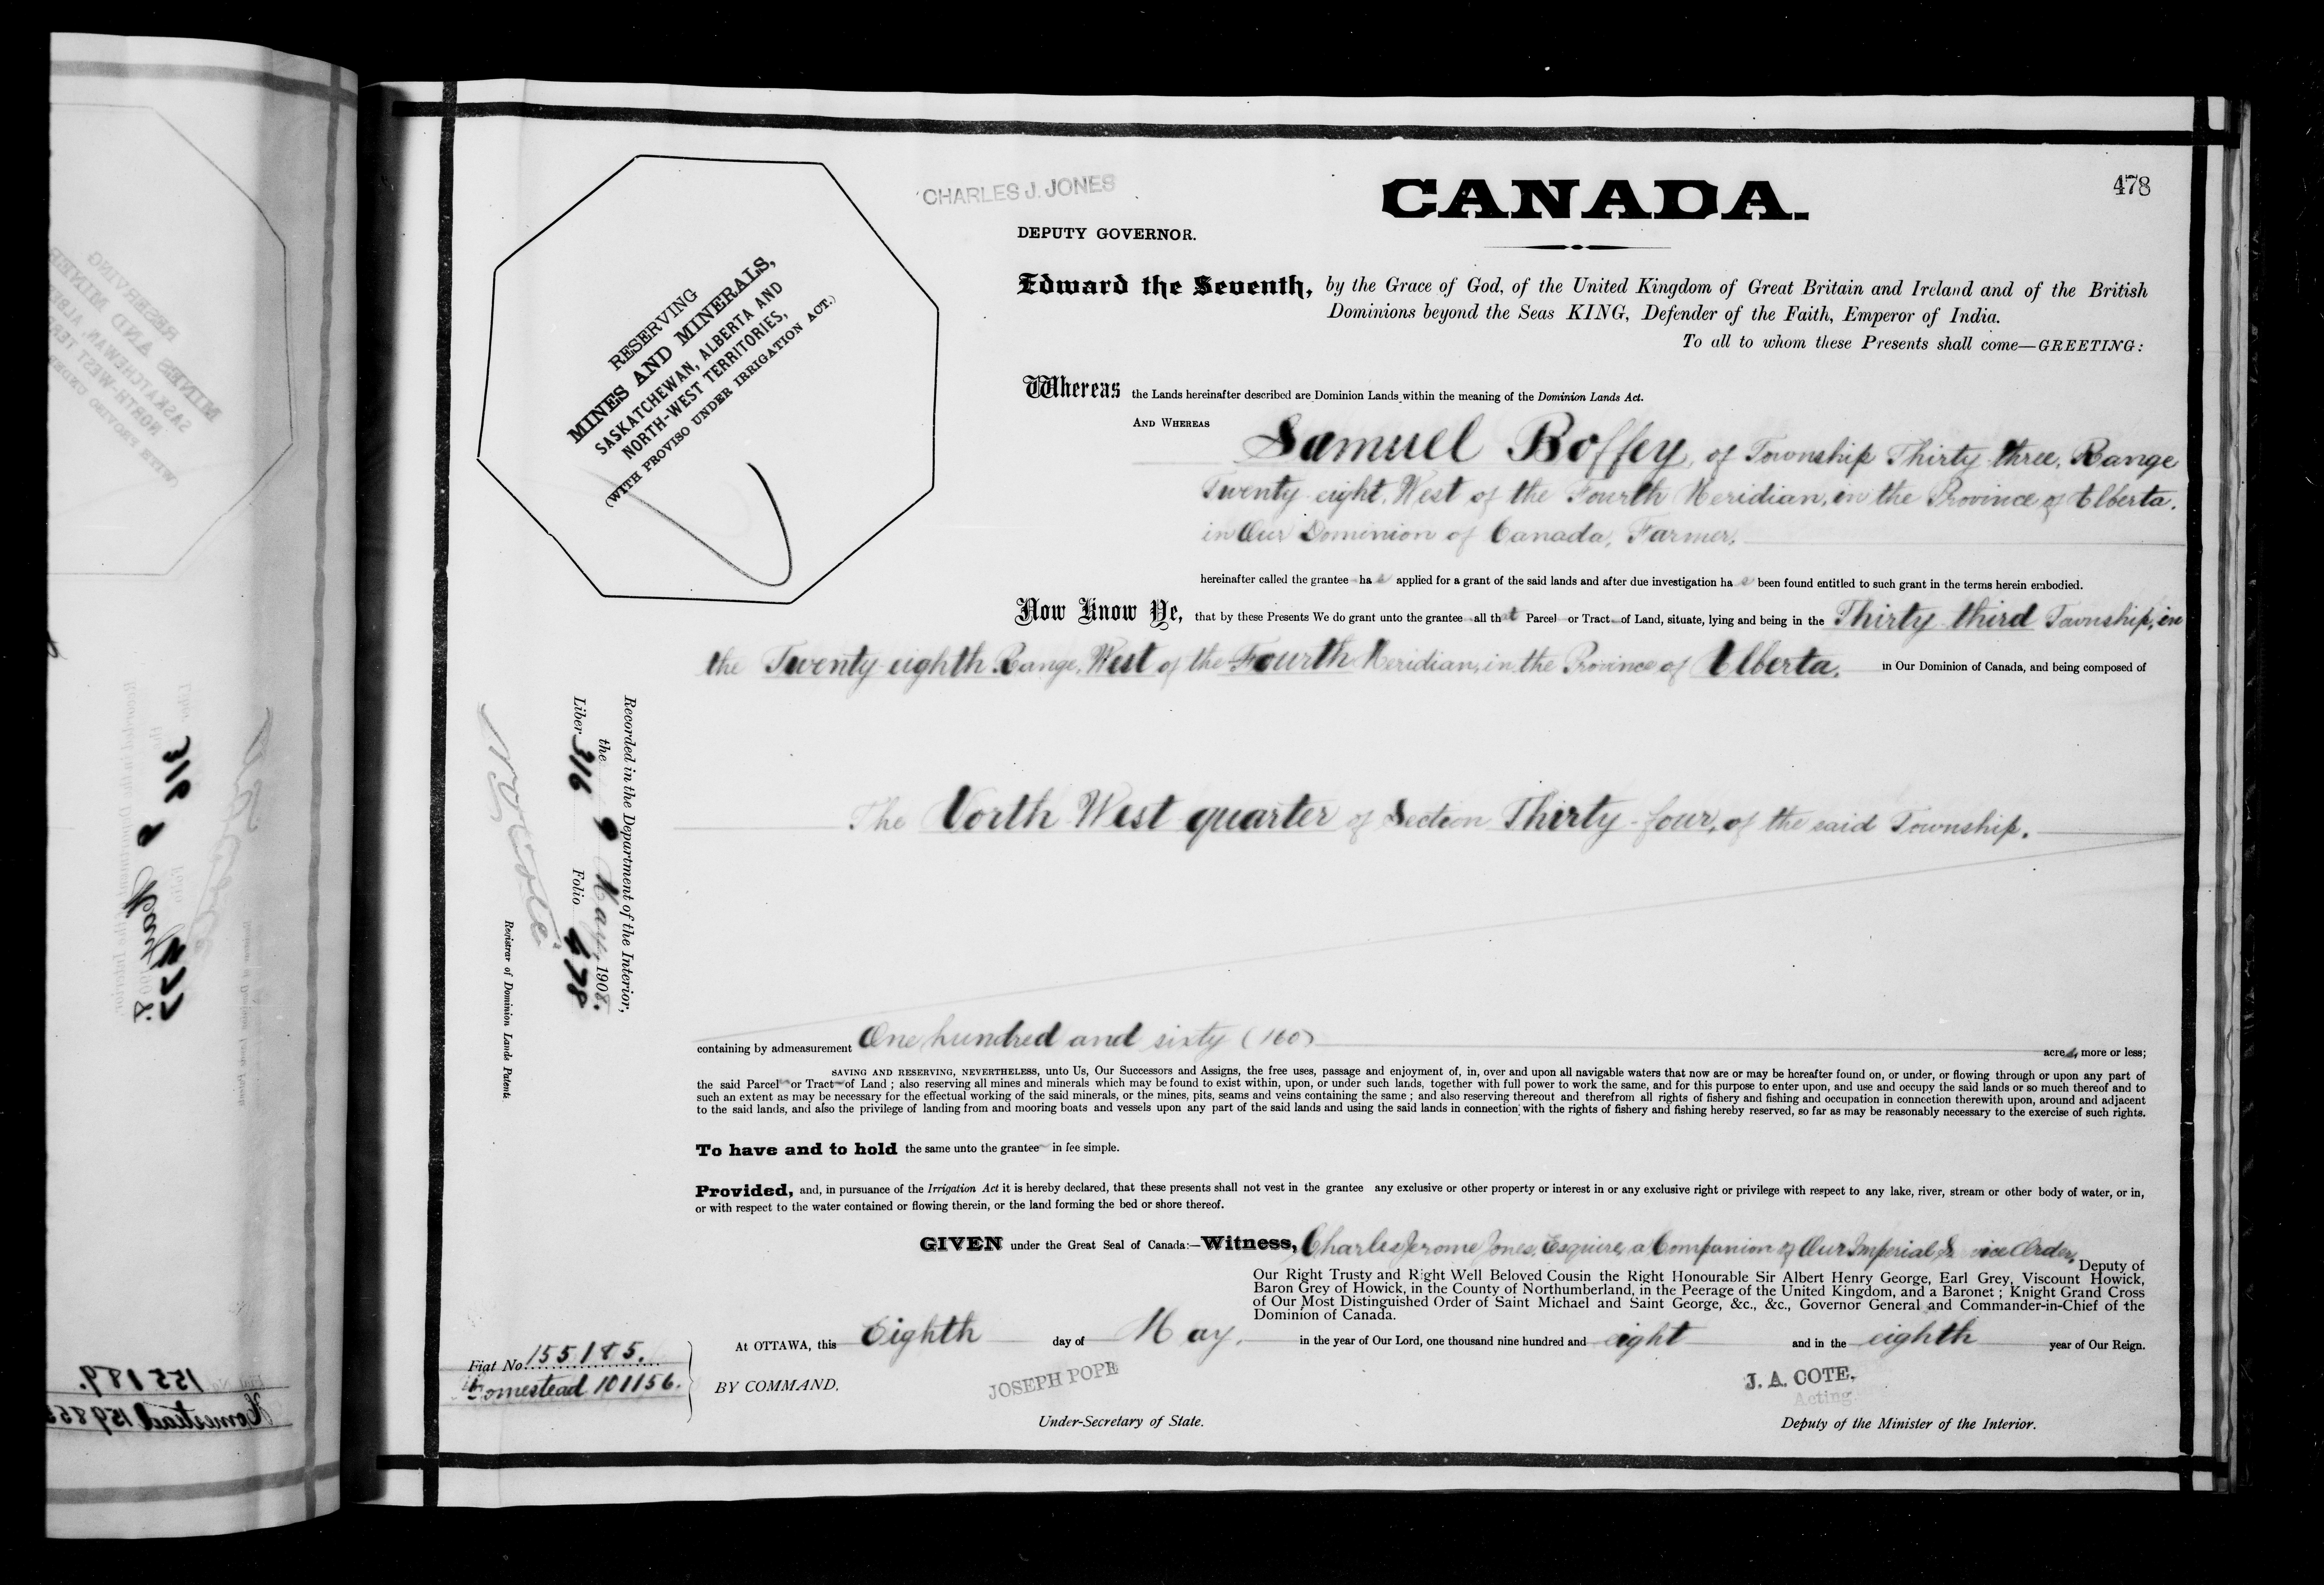 CHARLES J. JONES
CANADA.
478
DEPUTY GOVERNOR.
RESERVING
MINES AND MINERALS,
SASKATCHEWAN, ALBERTA AND
NORTH-WEST TERRITORIES,
(WITH PROVISO UNDER IRRIGATION ACT.)
Edward the Seventh, by the Grace of God, of the United Kingdom of Great Britain and Ireland and of the British
Dominions beyond the Seas KING, Defender of the Faith, Emperor of India.
To all to whom these Presents shall come—GREETING:
Whereas the Lands hereinafter described are Dominion Lands within the meaning of the Dominion Lands Act.
AND WHEREAS
Samuel Boffey, of Township Thirty three, Range
Twenty eight, West of the Fourth Meridian, in the Province of Alberta,
in Our Dominion of Canada, Farmer,
hereinafter called the grantee has applied for a grant of the said lands and after due investigation has been found entitled to such grant in the terms herein embodied.
Now Know Ye, that by these Presents We do grant unto the grantee all that Parcel or Tract of Land, situate, lying and being in the Thirty third Township, in
the Twenty eighth Range, West of the Fourth Meridian, in the Province of Alberta, in Our Dominion of Canada, and being composed of
The North West quarter of Section Thirty-four, of the said Township.
Recorded in the Department of the Interior,
the 9 May, 1908.
Liber 316 Folio 478
Registrar of Dominion Lands Patents
containing by admeasurement One hundred and sixty (160) acres, more or less;
SAVING AND RESERVING, NEVERTHELESS, unto Us, Our Successors and Assigns, the free uses, passage and enjoyment of, in, over and upon all navigable waters that now are or may be hereafter found on, or under, or flowing through or upon any part of
the said Parcel or Tract of Land ; also reserving all mines and minerals which may be found to exist within, upon, or under such lands, together with full power to work the same, and for this purpose to enter upon, and use and occupy the said lands or so much thereof and to
such an extent as may be necessary for the effectual working of the said minerals, or the mines, pits, seams and veins containing the same ; and also reserving thereout and therefrom all rights of fishery and fishing and occupation in connection therewith upon, around and adjacent
to the said lands, and also the privilege of landing from and mooring boats and vessels upon any part of the said lands and using the said lands in connection with the rights of fishery and fishing hereby reserved, so far as may be reasonably necessary to the exercise of such rights.
To have and to hold the same unto the grantee in fee simple.
Provided, and, in pursuance of the Irrigation Act it is hereby declared, that these presents shall not vest in the grantee any exclusive or other property or interest in or any exclusive right or privilege with respect to any lake, river, stream or other body of water, or in,
or with respect to the water contained or flowing therein, or the land forming the bed or shore thereof.
GIVEN under the Great Seal of Canada:—Witness, Charles Jerome Jones, Esquire, a Companion of Our Imperial Service Order, Deputy of
Our Right Trusty and Right Well Beloved Cousin the Right Honourable Sir Albert Henry George, Earl Grey, Viscount Howick,
Baron Grey of Howick, in the County of Northumberland, in the Peerage of the United Kingdom, and a Baronet ; Knight Grand Cross
of Our Most Distinguished Order of Saint Michael and Saint George, &c., &c., Governor General and Commander-in-Chief of the
Dominion of Canada.
At OTTAWA, this Eighth day of May, in the year of Our Lord, one thousand nine hundred and eight and in the eighth year of Our Reign.
Fiat No 155185.
Homestead 101156.
BY COMMAND,
JOSEPH POPE
Under-Secretary of State.
J. A. COTE,
Acting
Deputy of the Minister of the Interior.